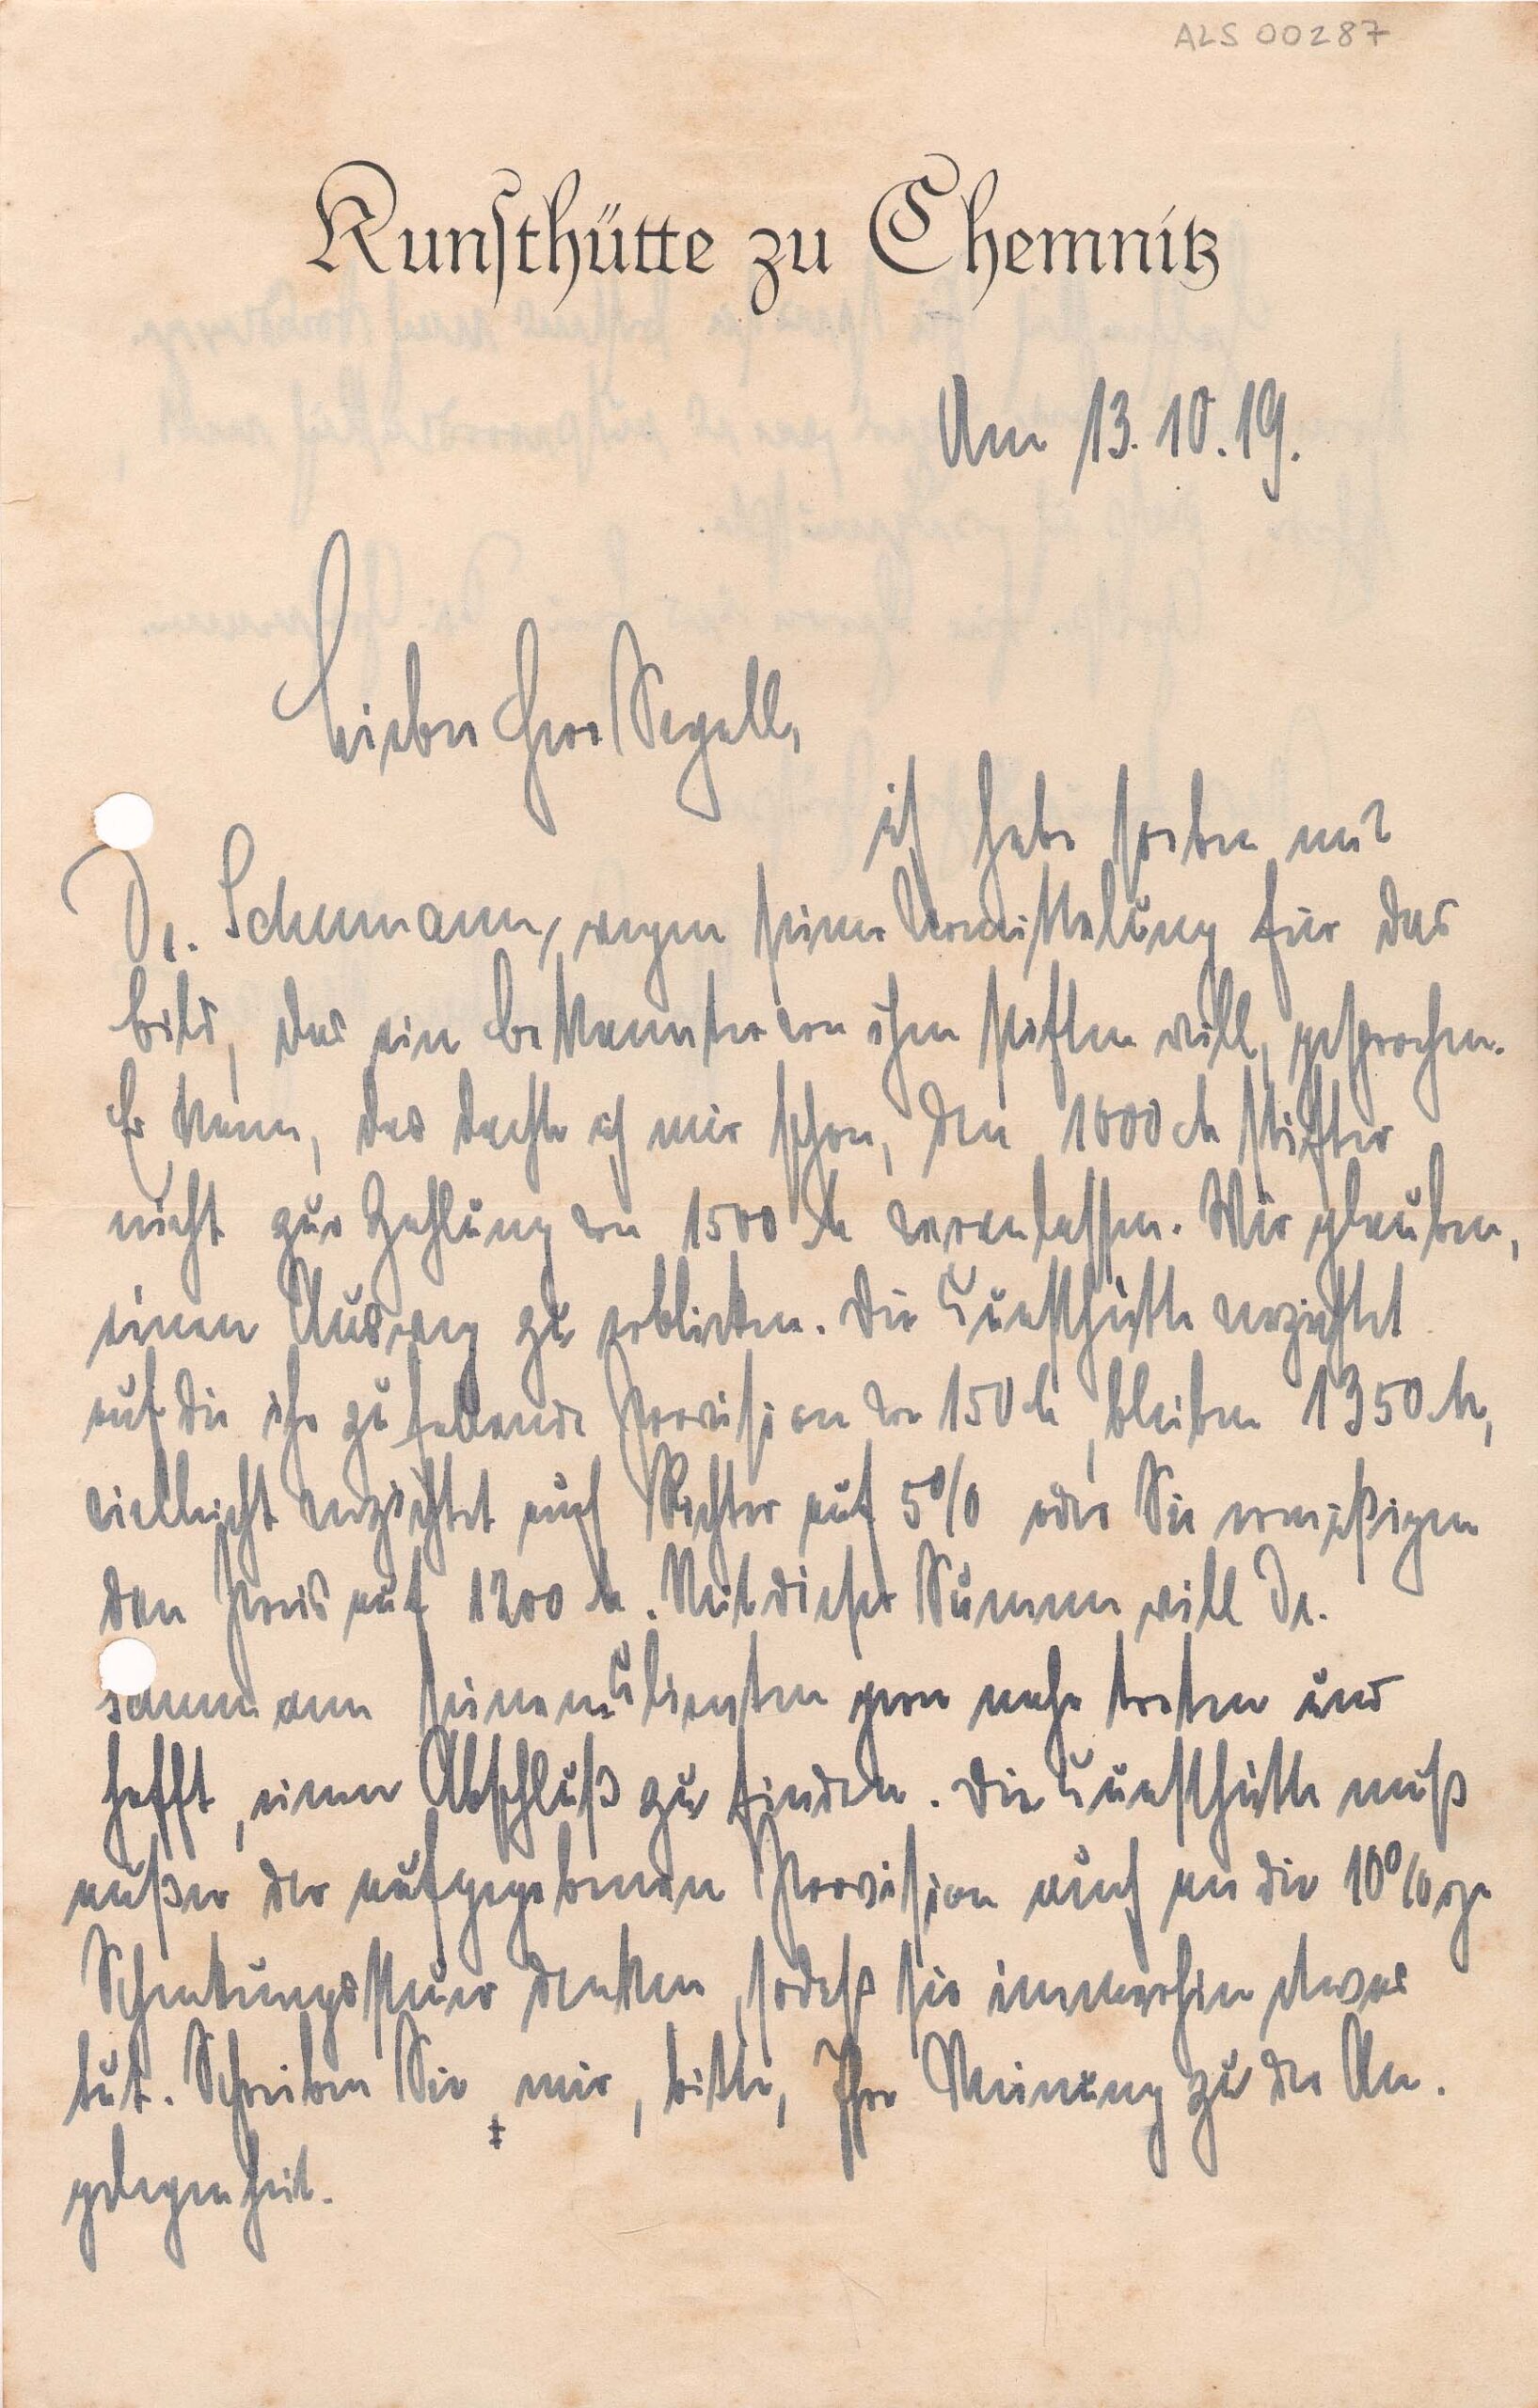 ALS 00287
Kunsthütte zu Chemnitz
Am 13.10.19.
Lieber Herr Segall,
ich habe soeben mit
Dr. Schumann, wegen seiner Vermittelung für das
Bild, das ein Bekannter von ihm stiften will, gesprochen.
Er kann, das dachte ich mir schon, den 1000 M Stifter
nicht zur Zahlung von 1500 M veranlassen. Wir glauben,
einen Ausweg zu erblicken. Die Kunsthütte verzichtet
auf die ihr zufallende Provision von 150 M, bleiben 1350 M,
vielleicht verzichtet auch Richter auf 5% oder Sie ermäßigen
den Preis auf 1200 M. Mit dieser Summe will Dr.
Schumann seinem Klienten gern nahe treten und
hofft, einen Abschluß zu finden. Die Kunsthütte muß
außer der aufgegebenen Provision auch an die 10%ge
Schenkungssteuer denken, sodaß sie immerhin etwas
tut. Schreiben Sie mir, bitte, Ihre Meinung zu der An-
gelegenheit.